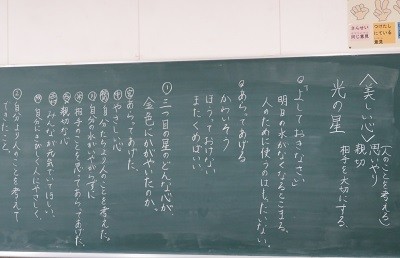 さんせい
同じ意見
つけたし
にている
意見
〈美しい心〉
(人のことを考える)
思いやり
親切
相手を大切にする
光の星
「よしておきなさい」
明日の水がなくなるとこまる。
人のために使うのはもったいない。
あらってあげる
かわいそう
ほうっておけない
またくめばいい。
① 三つ目の星のどんな心が、
金色にかがやいたのか。
あらってあげた。
やさしい心
自分たちより人のことを考えた。
自分の水がへってもいい
相手のことを思ってあらってあげた。
親切な心
みんなが元気でいてほしい。
自分にきびしく人にやさしく。
② 自分より人のことを考えて
できたこと。